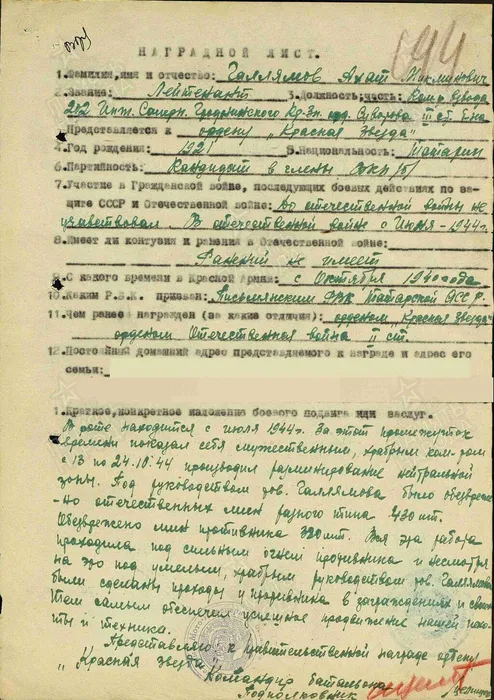 194
НАГРАДНОЙ ЛИСТ.
1.Фамилия,имя и отчество: Галлямов Ахат
2.Звание: Лейтенант 3.Должность,часть: Ком-р взвода
212 Инж. Сапёрн. Гродненского Кр-Зн. орд. Суворова III ст. б-на
Представляется к ордену „Красная Звезда"
4.Год рождения: 1921 5.Национальность: Татарин
6.Партийность: Кандидат в члены ВКП/б/
7.Участие в Гражданской войне, последующих боевых действиях по за-
щите СССР и Отечественной войне: До отечественной войны не
учавствовал. В отечественной войне с Июня - 1944г.
8.Имеет ли контузия и ранения в Отечественной войне:
Ранений не имеет
9.С какого времени в Красной Армии: с Октября 1940 года
10.Каким Р.В.К. призван: Письмянским РВК Татарской АССР.
11.Чем ранее награжден (за какие отличия): орденом „Красная Звезда"
орденом Отечественная война II ст.
12.Постоянный домашний адрес представляемого к награде и адрес его
семьи:
1.Краткое,конкретное изложение боевого подвига или заслуг.
В роте находится с июля 1944г. За этот промежуток
времени показал себя мужественным, храбрым ком-ром
с 13 по 24.10.44 производил разминирование нейтральной
зоны. Под руководством тов. Галлямова было обезвреже-
но отечественных мин разного типа 430 шт.
Обезврежено мин противника 320 шт. Вся эта работа
проходила под сильным огнем противника и несмотря
на это под умелым, храбрым руководством тов. Галлямова
были сделаны проходы у противника в заграждениях и своих
Тем самым обеспечен успешное продвижение нашей пехо-
ты и техника.
Представляю к правительственной награде ордену
„Красная Звезда"
Командир батальона
Подполковник